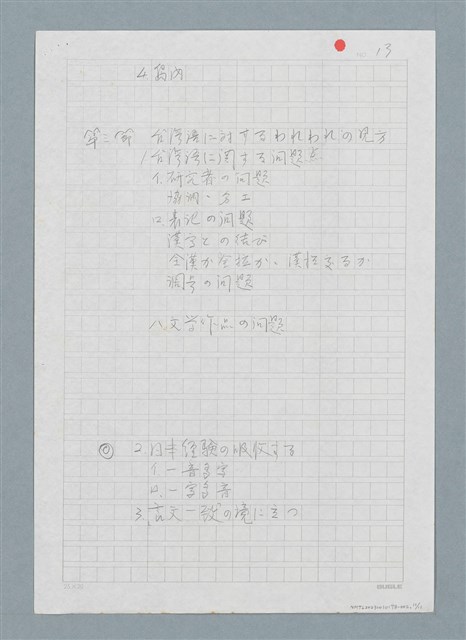 13
4.
第二節 台湾語に対するわれわれの見方
1.台湾語に関する問題点
イ.研究者の問題
ロ.表記の問題
漢字との結び
全漢か全拉か、漢拉まるか
調号の問題
ハ.文学作品の問題
◎ 2.日本経験の吸収する
イ.一音多字
ロ.一字多音
3.言文一致の境に立つ